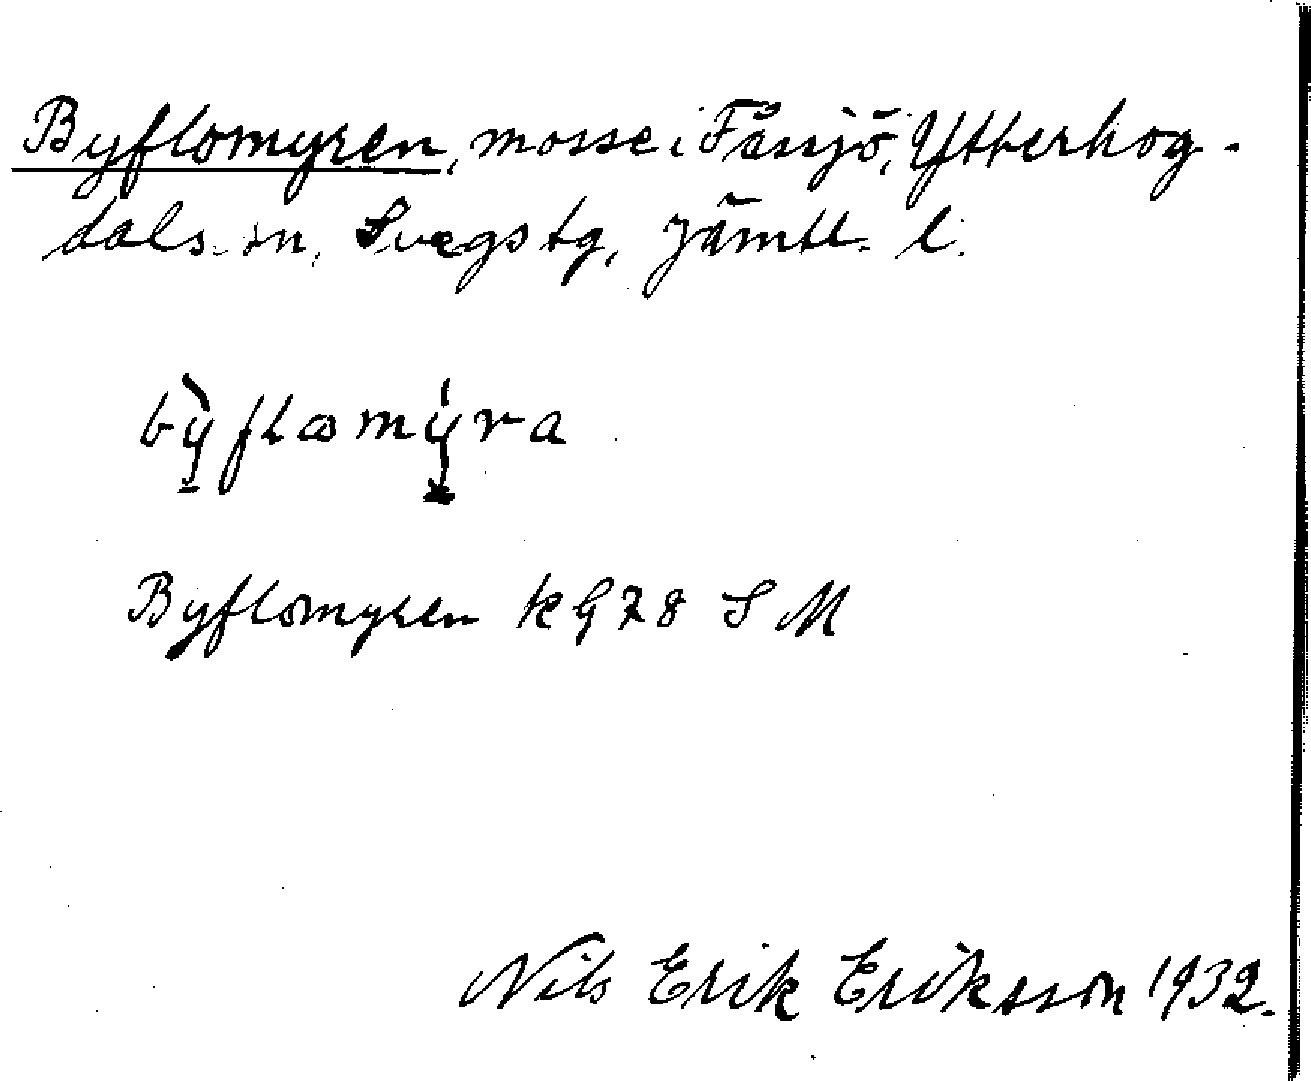 Byflomyren, mosse i Fåssjö, Ytterhog-
dals sn, Svegs tg, Jämtl. l.
bỳflomýra
Byflomyren k G 78 S M
Nils Erik Eriksson 1932.